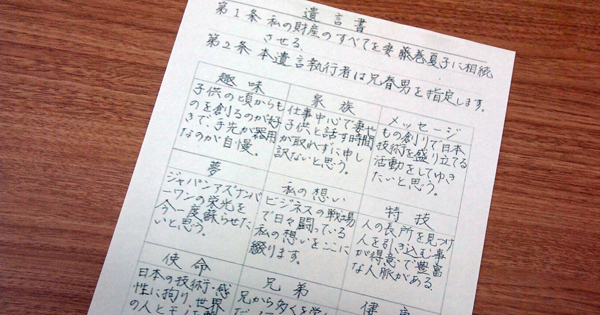 遺言書
第1条 私の財産のすべてを妻藤巻夏子に相続
させる。
第2条 本遺言執行者は兄春男を指定します。
趣味
子供の頃からも
のを創るのが好
きで、手先が器用
なのが自慢。
家族
仕事中心で妻や
子供と話す時間
が取れずに申し
訳ないと思う。
メッセージ
もの創りで日本
技術を盛り立てる
活動をしてゆき
たいと思う。
夢
ジャパンアズナンバ
ーワンの栄光を
今一度蘇らせた
いと思う。
私の想い
ビジネスの戦場
で日々闘っている
私の想いをここに
綴ります。
特技
人の長所を見つけ
人を引き込む事
が得意で豊富
な人脈がある。
使命
日本の技術・感
性に拘り、世界
兄弟
兄から多くを学
健康